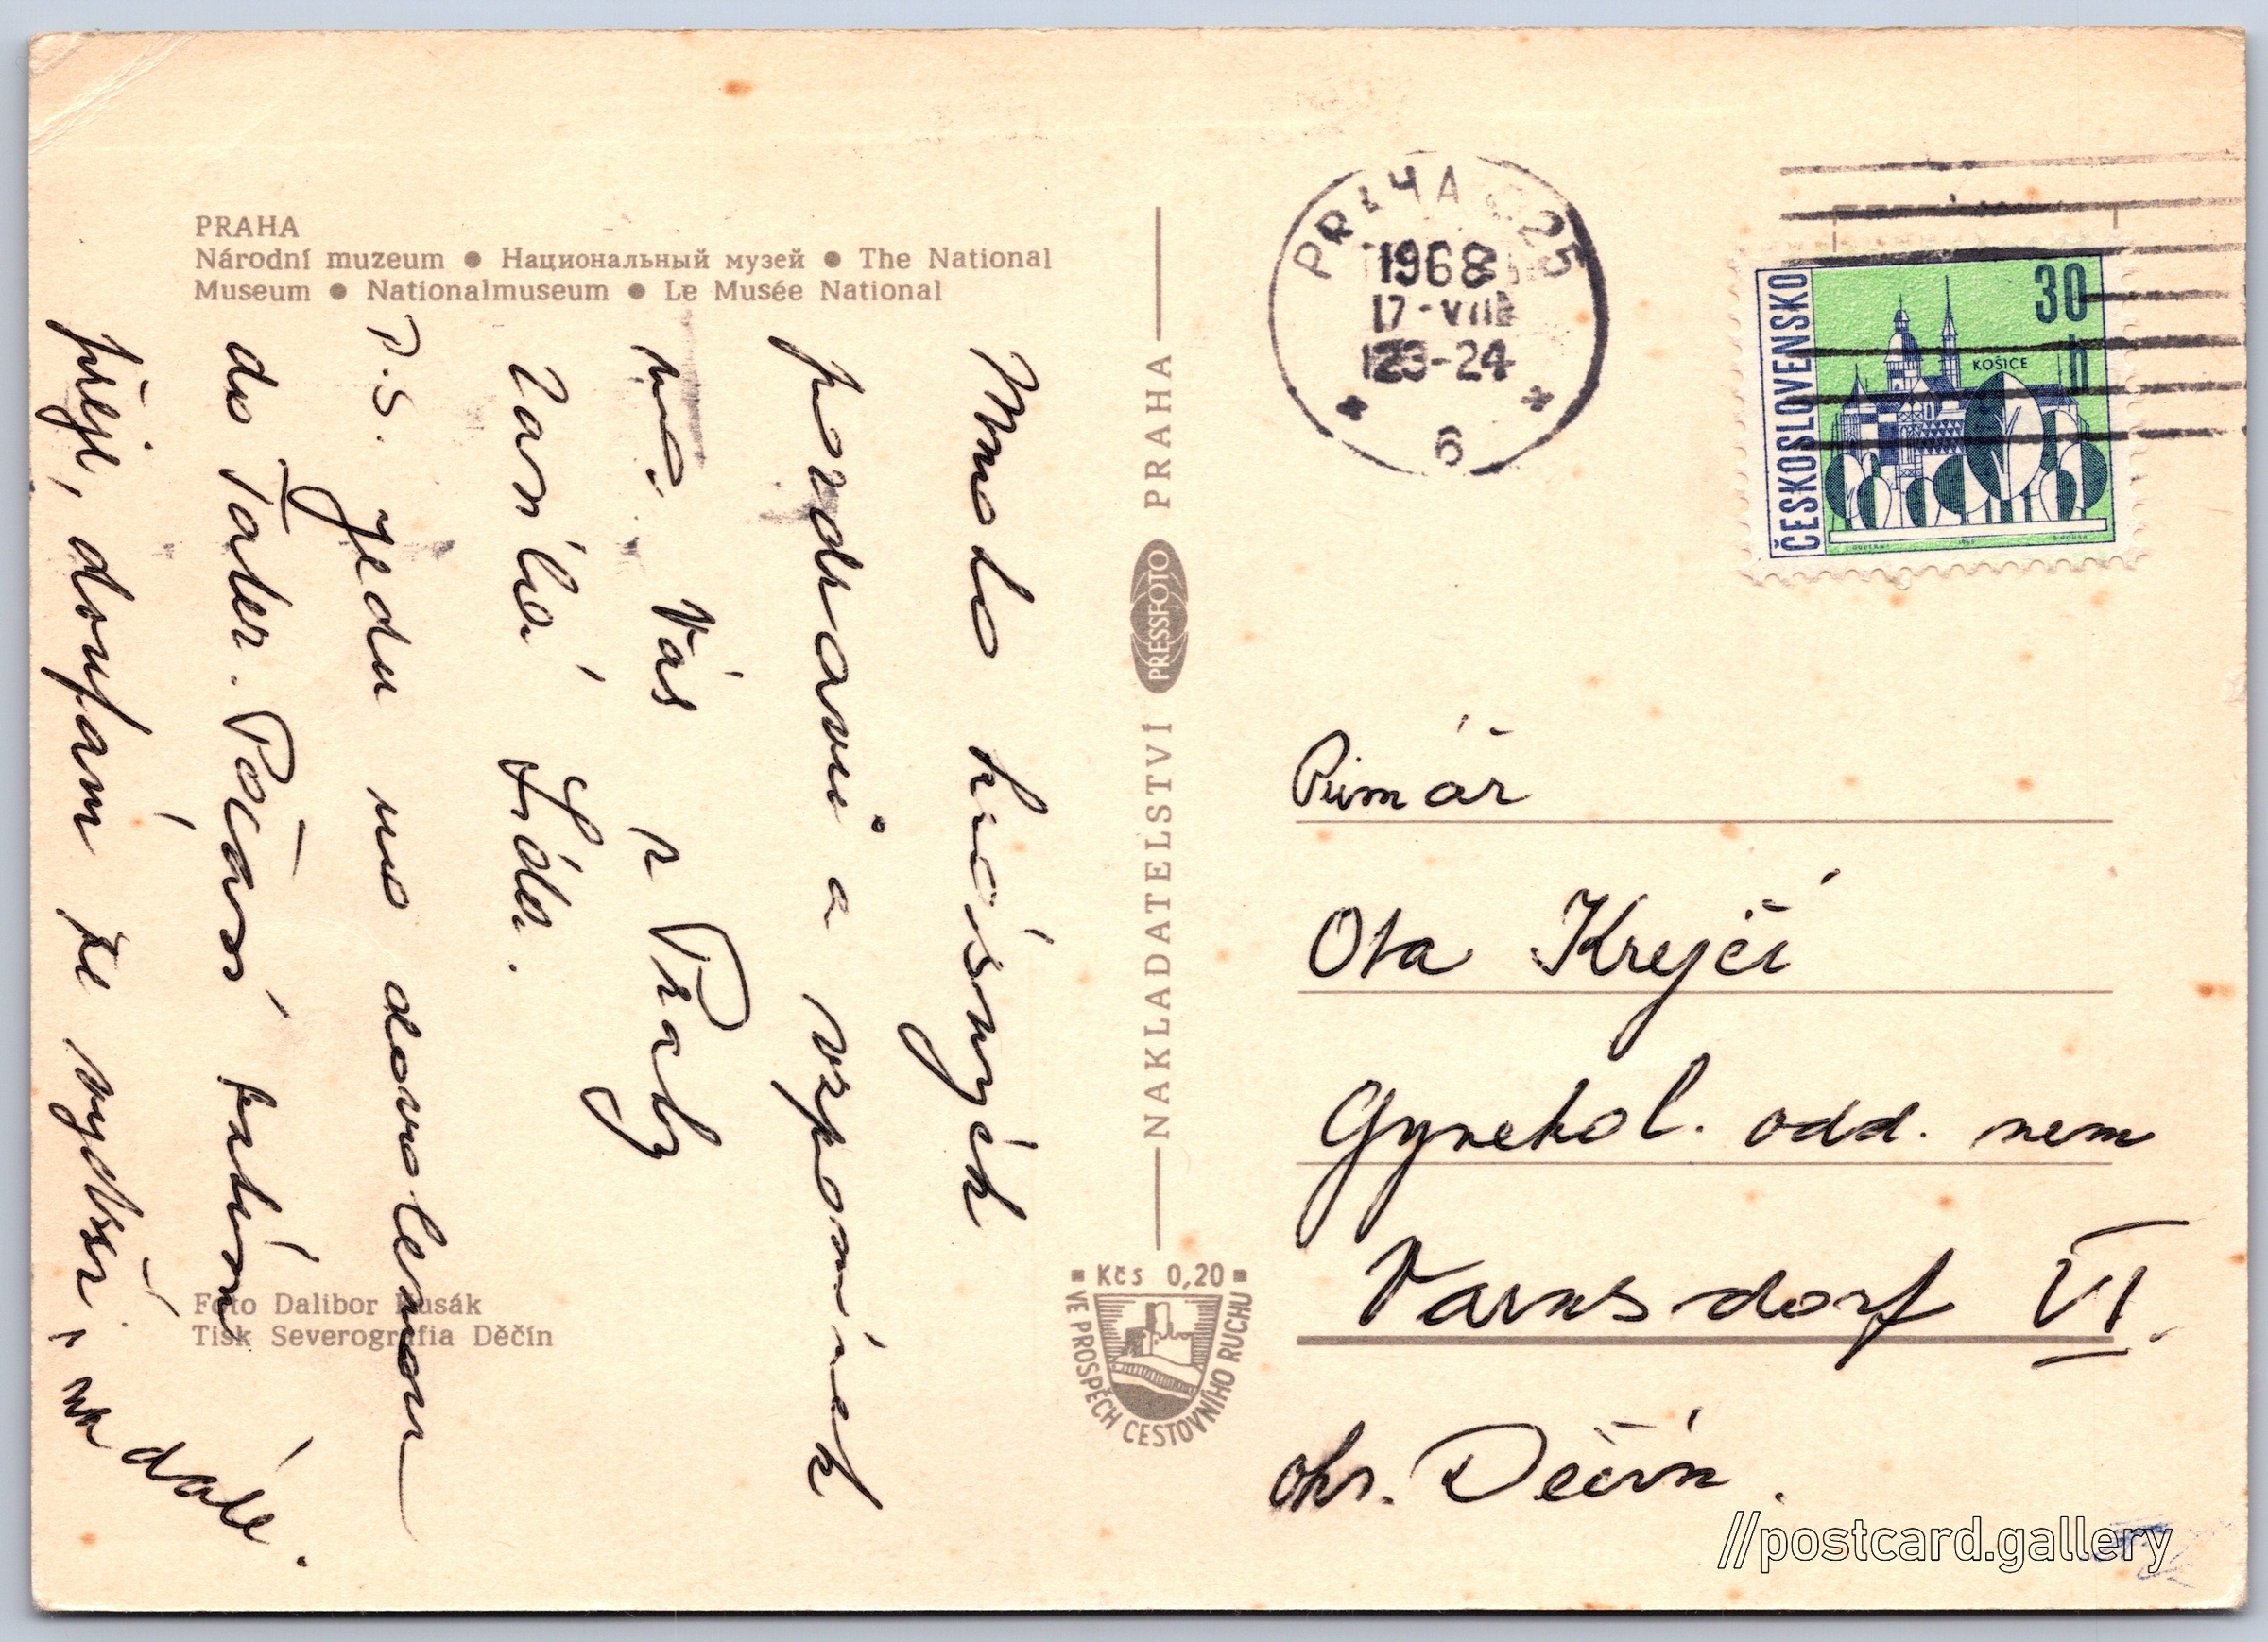 PRAHA
Národní muzeum ● Национальный музей ● The National
Museum ● Nationalmuseum ● Le Musée National
Mnoho krásných
pozdravů a vzpomínek
na Vás z Prahy
Láďa.
P.S. Jedu na dovolenou
do Tater. Počasí
přeje, doufám že vydrží i na dále.
Foto Dalibor Kusák
Tisk Severografia Děčín
NAKLADATELSTVÍ PRESSFOTO PRAHA
Kčs 0,20
VE PROSPĚCH CESTOVNÍHO RUCHU
PRAHA 025
1968
17-VIII
23-24
6
ČESKOSLOVENSKO
30 h
KOŠICE
Primář
Ota Krejčí
Gynekol. odd. nem
Varnsdorf VI.
okr. Děčín.
//postcard.gallery